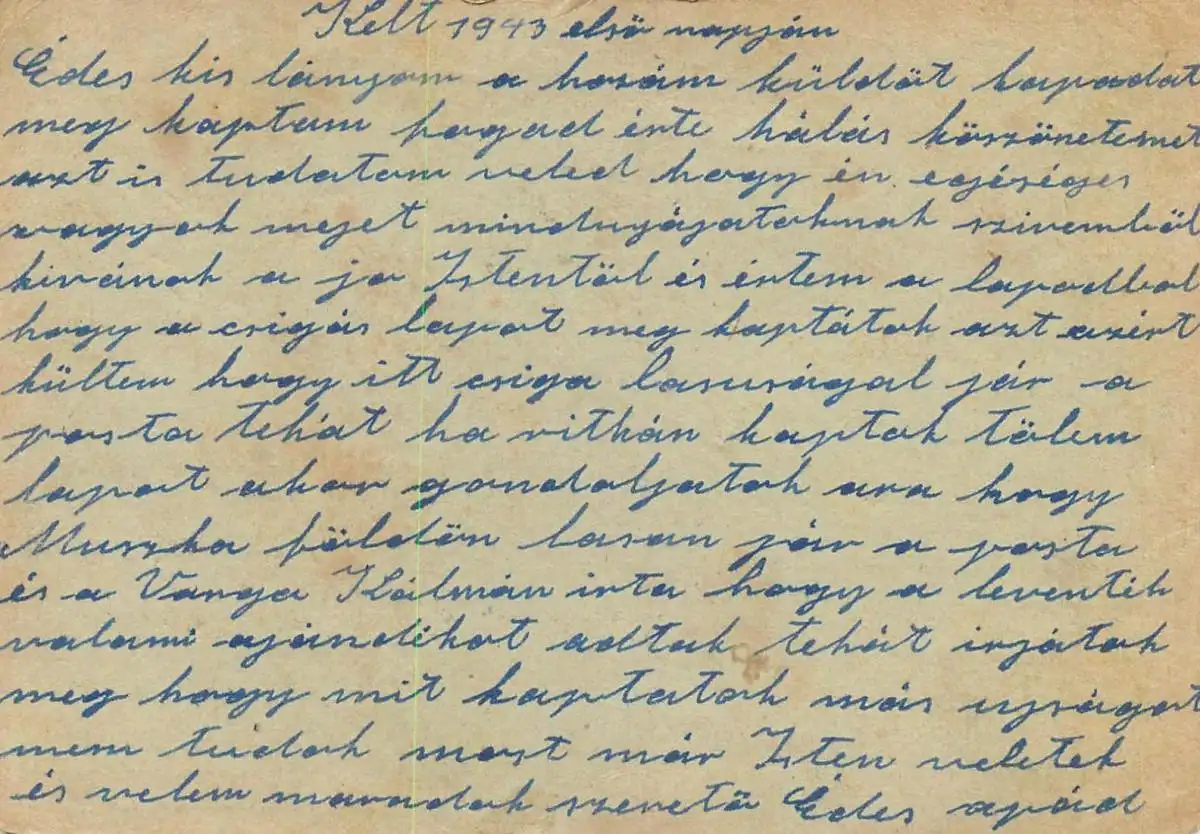 Kelt 1943 első napján
Édes kis lányom a hozám küldöt lapadat
meg kaptam fogad érte hálás köszönetemet
azt is tudatom veled hogy én egéséges
vagyok mejet mindnyájatoknak szivemböl
kivánok a jo Istentöl és értem a lapodbol
hogy a csigás lapot meg kaptátok azt azért
kültem hogy itt csiga lasuságal jár a
posta tehát ha ritkán kaptok tölem
lapot akor gondoljatok ara hogy
Muszka földön lasan jár a posta
és a Varga Kálmán irta hogy a leventék
valami ajándikot adtak tehát irjátok
meg hogy mit kaptatok más ujságot
nem tudok most már Isten veletek
és velem maradok szeretö Édes apád